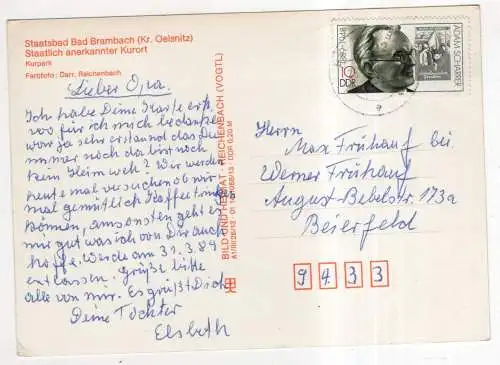 Staatsbad Bad Brambach (Kr. Oelsnitz)
Staatlich anerkannter Kurort
Kurpark
Farbfoto: Darr, Reichenbach
Lieber Opa.
Ich habe Deine Karte erh.
wo für ich mich bedanke
war ja sehr erstaunt das Du
immer noch da bist noch
kein Heimweh? Wir werden
heute mal versuchen ob wir
mal gemütlich Kaffeetrinken
können, ansonsten geht es
mir gut was ich von Dir auch
hoffe. Werde am 31.3.89
entlassen. Grüße bitte
alle von mir. Es grüßt Dich
Deine Tochter
Elsbeth
BILD UND HEIMAT · REICHENBACH (VOGTL)
DDR 0,20 M
1887-1948
10
DDR
ADAM SCHARRER
Herrn
Max Frühauf bei
Werner Frühauf
August-Bebelstr. 173a
Beierfeld
9 4 3 3